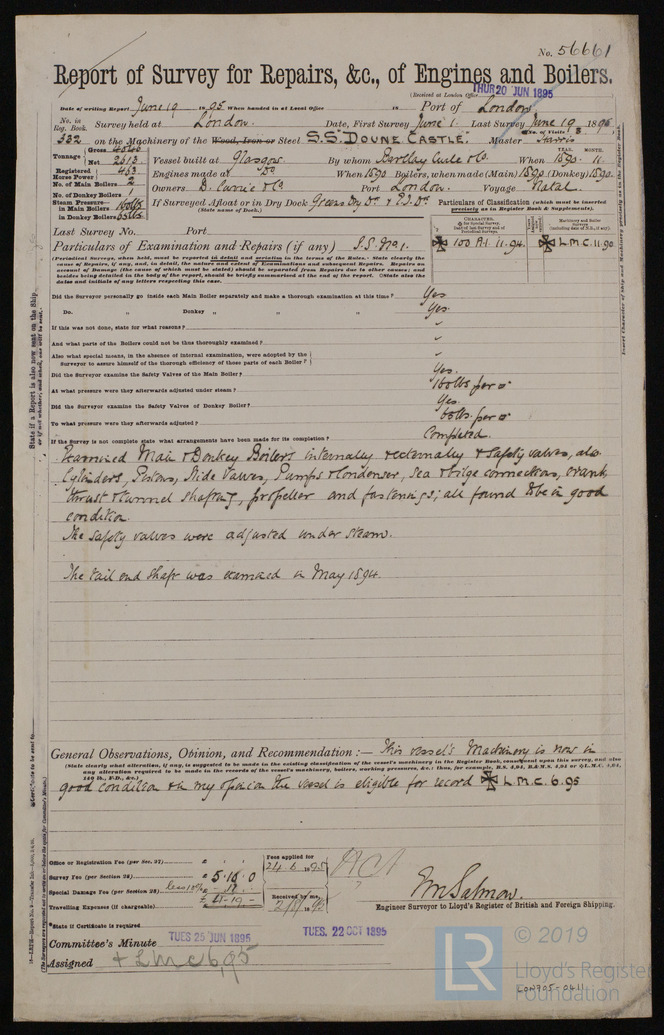 No. 56661
Report of Survey for Repairs, &c., of Engines and Boilers.
(Received at London Office THUR 20 JUN 1895
Date of writing Report June 19 1895 When handed in at Local Office 18 Port of London
No. in Reg. Book. Survey held at London Date, First Survey June 1. Last Survey June 19 1895
332 on the Machinery of the Wood, Iron or Steel S.S. "DOUNE CASTLE." Master Harris
Tonnage Gross
Net 2613
Vessel built at Glasgow By whom Barclay Curle & Co. When 1890. 11.
Registered Horse Power 463 Engines made at Do When 1890 Boilers, when made (Main) 1890 (Donkey) 1890.
No. of Main Boilers 2
No. of Donkey Boilers 1
Owners D. Currie & Co Port London. Voyage Natal.
Steam Pressure in Main Boilers 160lbs
in Donkey Boilers 65lbs
If Surveyed Afloat or in Dry Dock
(State name of Dock.)
Particulars of Classification (which must be inserted precisely as in Register Book & Supplements).
Last Survey No. Port
100 A.1. 11.94. L.M.C. 11.90
Particulars of Examination and Repairs (if any) S.S. No. 1.
Did the Surveyor personally go inside each Main Boiler separately and make a thorough examination at this time? Yes
Do. " Donkey " " " Yes.
If this was not done, state for what reasons? "
And what parts of the Boilers could not be thus thoroughly examined? "
Also what special means, in the absence of internal examination, were adopted by the Surveyor to assure himself of the thorough efficiency of those parts of each Boiler? "
Did the Surveyor examine the Safety Valves of the Main Boiler? Yes.
At what pressure were they afterwards adjusted under steam? 160lbs per □"
Did the Surveyor examine the Safety Valves of Donkey Boiler? Yes.
To what pressure were they afterwards adjusted? 65lbs. per □"
If the Survey is not complete state what arrangements have been made for its completion? Completed.
Examined Main & Donkey Boilers internally & externally & safety valves, also
Cylinders, Pistons, Slide Valves, Pumps & Condenser, Sea & bilge connections, crank,
thrust & tunnel shafting, propeller and fastenings; all found to be in good
condition.
The safety valves were adjusted under steam.
The tail end shaft was examined in May 1894.
General Observations, Opinion, and Recommendation:— This vessel's Machinery is now in
(State clearly what alteration, if any, is suggested to be made in the existing classification of the vessel's machinery in the Register Book, consequent upon this survey, and also
any alteration required to be made in the records of the vessel's machinery, boilers, working pressures, &c.: thus, for example, B.S. 4,94, B.&M.S. 4,94 or ✠L.M.C. 4,94,
140 lb., F.D., &c.)
good condition & in my opinion the vessel is eligible for record ✠ L.M.C. 6.95
Office or Registration Fee (per Sec. 27) £ : :
Survey Fee (per Section 28) £ 5.10.0
Special Damage Fee (per Section 28) less 10%
Travelling Expenses (if chargeable)
Fees applied for 24.6.1895
Received by me,
Engineer Surveyor to Lloyd's Register of British and Foreign Shipping.
*State if Certificate is required
Committee's Minute TUES 25 JUN 1895 TUES. 22 OCT 1895
Assigned + LMC 6,95
LR © 2019
Lloyd's Register
Foundation
LON905-0411